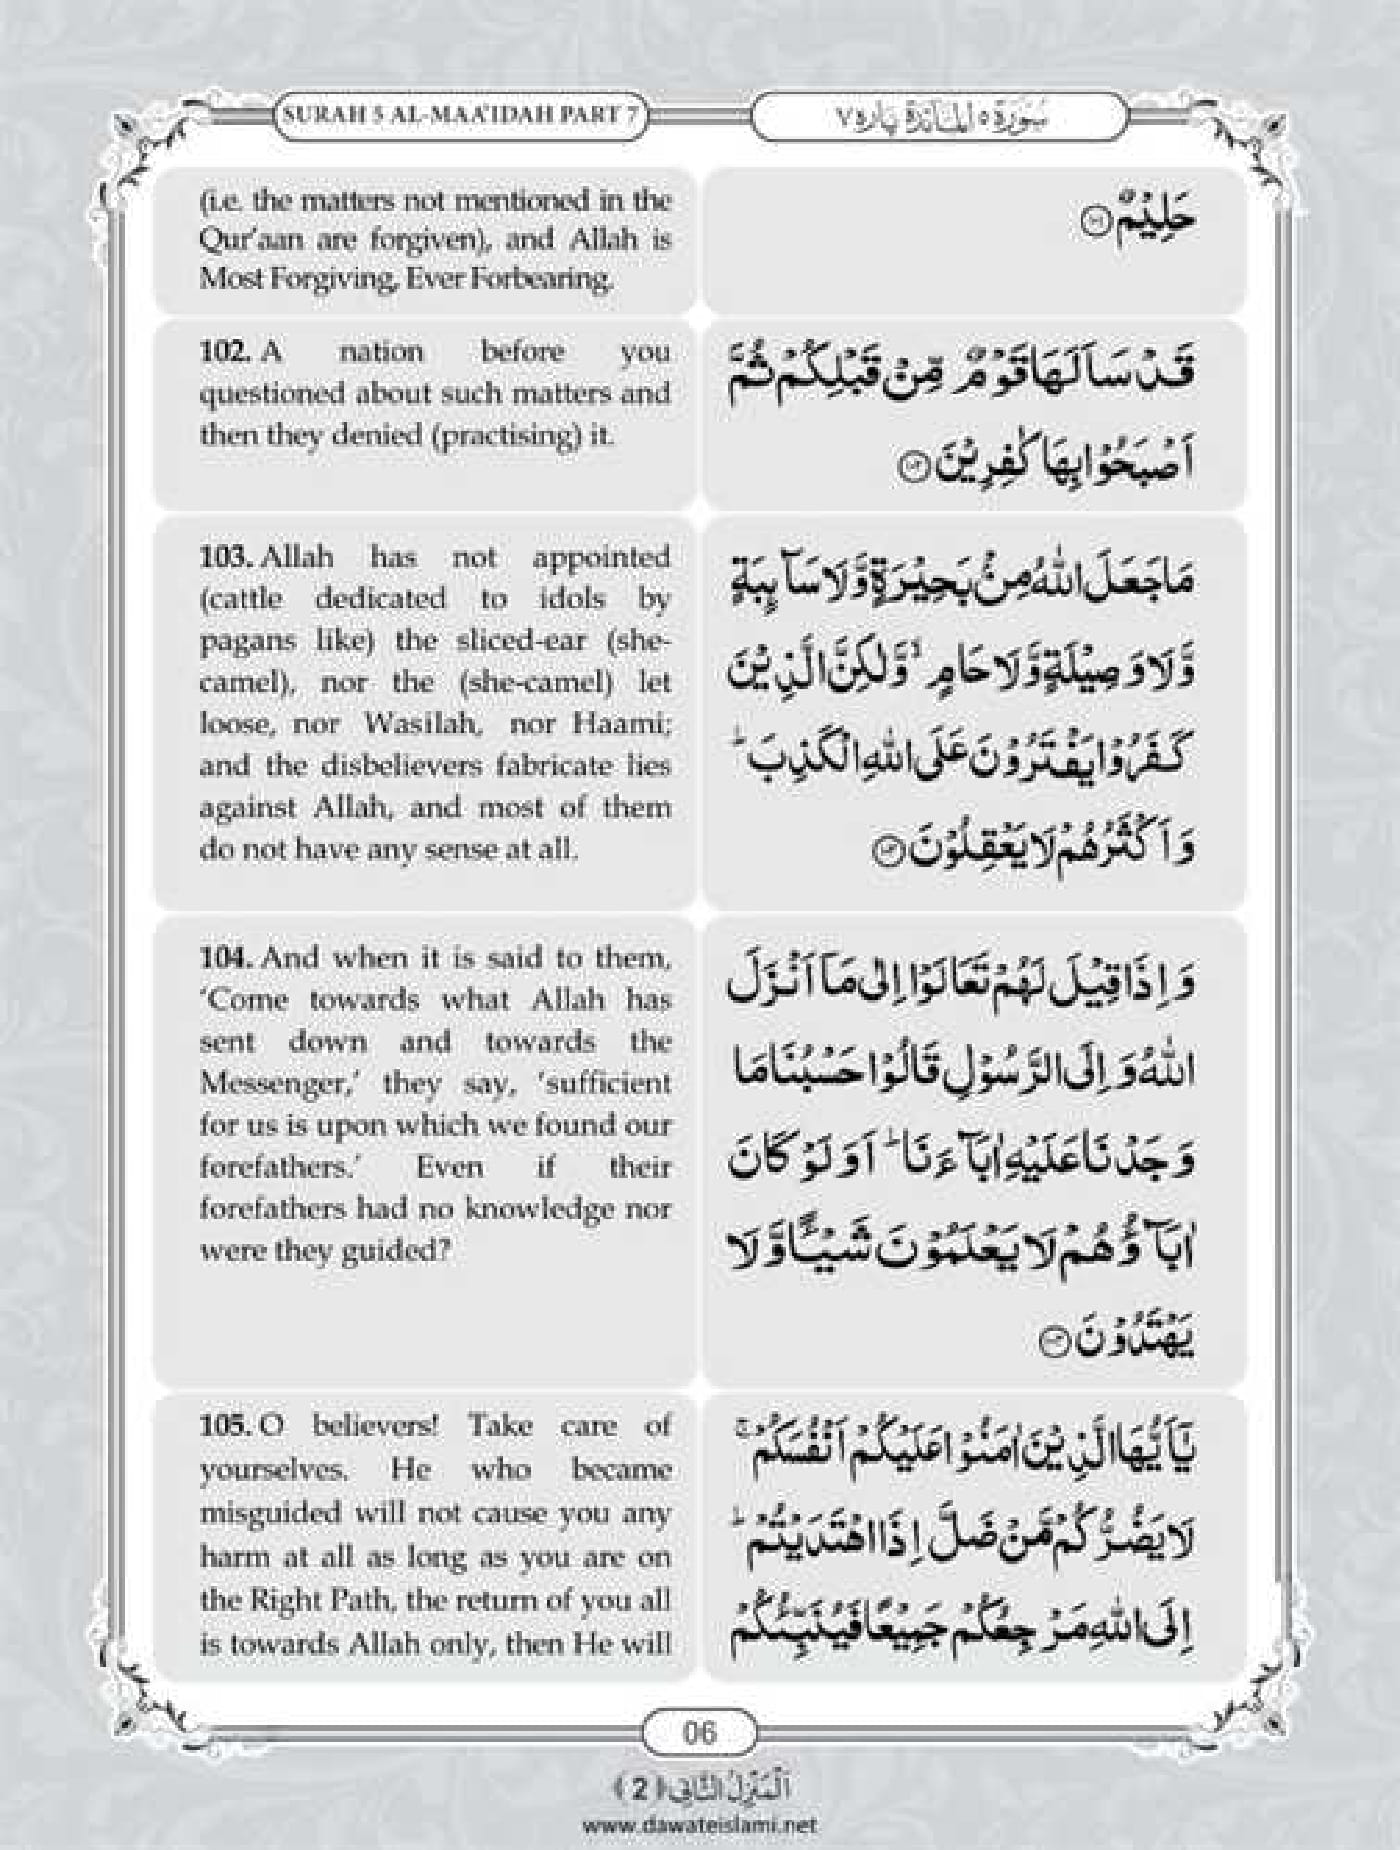 SURAH 5 AL-MAA'IDAH PART 7
سُوْرَةُ ٥ الْمَآئِدَة پاره ٧
(i.e. the matters not mentioned in the
Qur'aan are forgiven), and Allah is
Most Forgiving, Ever Forbearing.
حَلِيْمٌ ۝۱۰۱
102. A nation before you
questioned about such matters and
then they denied (practising) it.
قَدْ سَاَلَهَا قَوْمٌ مِّنْ قَبْلِكُمْ ثُمَّ
اَصْبَحُوْا بِهَا كٰفِرِيْنَ ۝۱۰۲
103. Allah has not appointed
(cattle dedicated to idols by
pagans like) the sliced-ear (she-
camel), nor the (she-camel) let
loose, nor Wasilah, nor Haami;
and the disbelievers fabricate lies
against Allah, and most of them
do not have any sense at all.
مَا جَعَلَ اللّٰهُ مِنْۢ بَحِيْرَةٍ وَّلَا سَآىِٕبَةٍ
وَّلَا وَصِيْلَةٍ وَّلَا حَامٍ ۙ وَّلٰكِنَّ الَّذِيْنَ
كَفَرُوْا يَفْتَرُوْنَ عَلَى اللّٰهِ الْكَذِبَ ؕ
وَاَكْثَرُهُمْ لَا يَعْقِلُوْنَ ۝۱۰۳
104. And when it is said to them,
‘Come towards what Allah has
sent down and towards the
Messenger,’ they say, ‘sufficient
for us is upon which we found our
forefathers.’ Even if their
forefathers had no knowledge nor
were they guided?
وَ اِذَا قِيْلَ لَهُمْ تَعَالَوْا اِلٰى مَاۤ اَنْزَلَ
اللّٰهُ وَ اِلَى الرَّسُوْلِ قَالُوْا حَسْبُنَا مَا
وَجَدْنَا عَلَيْهِ اٰبَآءَنَا ؕ اَوَ لَوْ كَانَ
اٰبَآؤُهُمْ لَا يَعْلَمُوْنَ شَيْـًٔا وَّلَا
يَهْتَدُوْنَ ۝۱۰۴
105. O believers! Take care of
yourselves. He who became
misguided will not cause you any
harm at all as long as you are on
the Right Path, the return of you all
is towards Allah only, then He will
يٰۤاَيُّهَا الَّذِيْنَ اٰمَنُوْا عَلَيْكُمْ اَنْفُسَكُمْ ۚ
لَا يَضُرُّكُمْ مَّنْ ضَلَّ اِذَا اهْتَدَيْتُمْ ؕ
اِلَى اللّٰهِ مَرْجِعُكُمْ جَمِيْعًا فَيُنَبِّئُكُمْ
06
اَلْمَنْزِلُ الثَّانِى ﴿2﴾
www.dawateislami.net